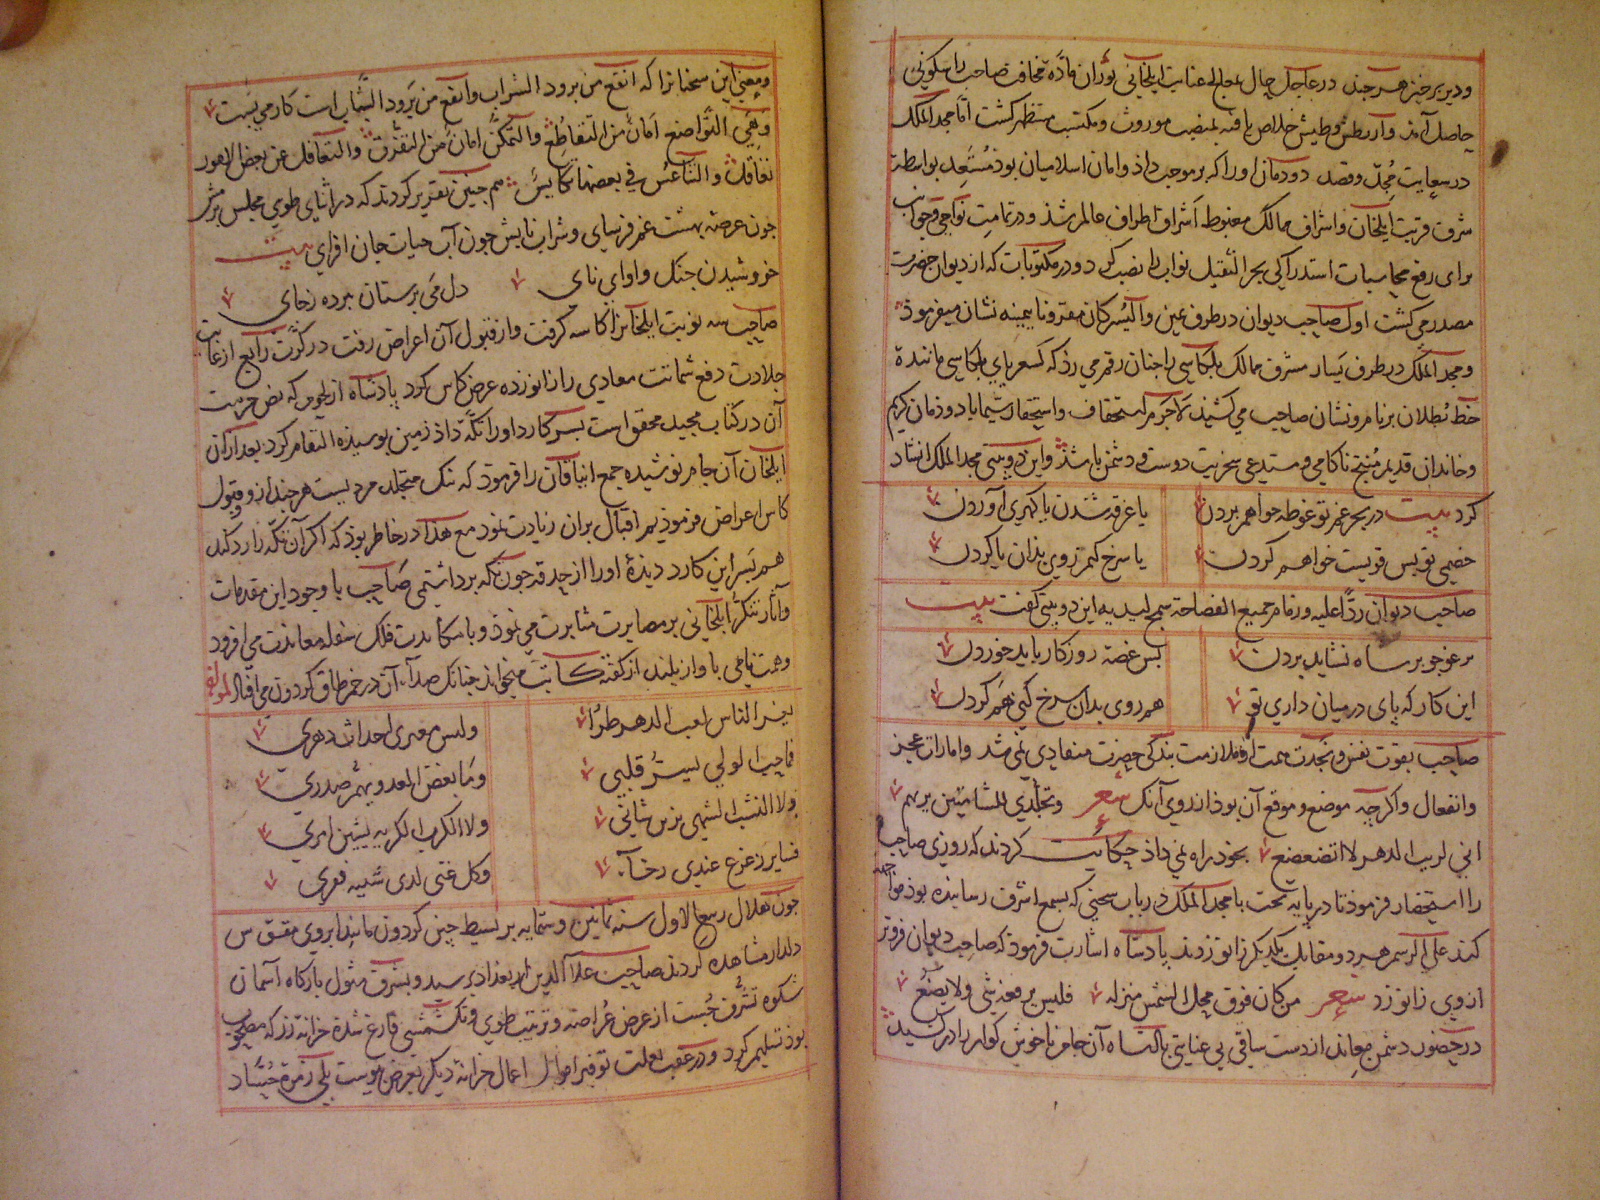 ودیر برخیزهر چند در عاجل حال معالجهٔ عنایت ایلخانی نوران مادّهٔ مخافت صاحب را سکونی
حاصل آمد وآن بطش وطیش خلاص یافته بمنصب موروث ومکتسب منتظر کشت امّا مجد الملک
در سعایت مُجِدّ وقصد دودمان اورا که بر موجب داذ وامان اسلامیان بود مُستَعِد بواسطهٔ
شرف قربت ایلخان واشراف ممالک مغبوط اَشراف اطراف عالم شد ودر تمامت نواحی وجوانب
برای رفع محاسبات استدراکی بجر الثقیل نواب را نصب کرد ودر مکتوبات که از دیوان حضرت
مصدر می کشت اوّل صاحب دیوان در طرف یمین والیُسر کان مقرونا بیمینه نشان میفرمود
ومجد الملک در طرف یسار مشرف ممالک
خط بُطلان بر نام ونشان صاحب می کشیذ لاجرم استخفاف واستحقار شیما با دوذمان کریم
وخاندان قدیم مُنتج ناکامی ومستدعی سخریت دوست ودشمن باشذ واین دوبیتی مجد الملک انشاد
کرد بیت در بحر غم تو غوطه خواهم بردن یا غرقه شدن یا کهری آوردن
خصمی تو بس قویست خواهم کردن یا سرخ کنم روی بذان یا کردن
صاحب دیوان ردًّا علیه ورقام جمیع الفصاحة سمح لدیه این دوبیتی کفت بیت
یرغو چو بر شاه نشاید بردن بس غصهٔ روزکار باید خوردن
این کار که پای در میان داری تو هم روی بدان سرخ کنی هم کردن
صاحب بقوت نفس ونجدت همت از ملازمت بندکی حضرت متفادی نمی شد وامارات عجز
وانفعال واکرچه موضع وموقع آن بوذ از روی آنک شعر وتجلّدی للشامتین اریهم
انی لریب الدهر لا اتضعضع بخود راه نمی داذ حکایت کردند که روزی صاحب
را استحضار فرموذ تا در پایهٔ تخت با مجد الملک در باب سخنی که بسمع اشرف رسانیده بوذ مواجهه
کند علی الرسم هر دو مقابل یکدیکر زانو زدند پادشاه اشارت فرموذ که صاحب دیوان فروتر
از وی زانو زد شعر من کان فوق محل الشمس منزله فلیس یرفعه شئ ولا یضع
در حضور دشمن معاند از دست ساقی بی عنایتی پادشاه آن جام ناخوش کوار را درکشید
ومعنی این سخنانرا که انقع من برود الشراب وانقع من برود الشباب است کار می بست
وبقی التواضع امانٌ من التقاطع والتمکّن امان من التفرّق والتغافل عن بعض الامور
تعاقلٌ والتناعس فی بعضها تکایسٌ هم چنین تقریر کردند که در اثنای طوی مجلس بزمش
چون عرصهٔ بهشت غم فرسای وشراب نابش چون آب حیات جان افزای بیت
خروشیدن چنک واوای نای دل می پرستان ببرده زجای
صاحب سه نوبت ایلخانرا کاسه کرفت واز قبول آن اعراض رفت در کرّت رابع از غایت
جلادت دفع شماتت معادی را زانو زده عرض کاس کرد پادشاه از لحومی که نص حرمت
آن در کتاب مجید محقق است بسر کارد اورا تکّه داذ زمین بوسیذه التقام کرد بعد از آن
ایلخان آن جام نوشیده جمع ایناقان را فرموذ که نیک متجلد مردیست هر چند از وقبول
کاس اعراض فرموذیم اقبال بران زیادت نمود مع هذا در خاطر بوذ که اکر آن تکّه را رد کند
هم بسر این کارد دیدهٔ اورا از حدقه چون تکه برداشتمی صاحب با وجود این مقدمات
وآثار تنکّر ایلخانی بر مصابرت مثابرت می نموذ وبا مکابدت فلک سفله معاندت می افزود
وهمت نامی باواز بلند از کفتهٔ کاتب میخواند چنانک صدآء آن در خم طاق کردون می افتاد لمؤلفه
یغر الناس لعب الدهر طرًّا ولیس مغیری احداث دهری
فما حب الولی یسرّ قلبی وما بغض العدو یهم صدری
ولا النشب الشهی یزین شانی ولا الکرب الکریه یشین امری
فما یرزعزع عندی رخآء وکل غنی لدی شبیه فقری
چون هلال ربیع الاول سنه ثمانین وستمایه بر بسیط چین کردون مانند ابروی مقوّس
دلدار مشاهده کردند صاحب علاآلدین از بغداد رسید وبشرف مثول بارکاه آسمان
شکوه تشرّف جُست از عرض عُراضه وترتیب طوی وتکشمشی فارغ شد خزانه زر که مصحوب
بوذ تسلیم کرد ودر عقب بعلت توفیر اموال اعمال خزانهٔ دیکر بعرض پیوست بلی زمرهٔ حُسّاد